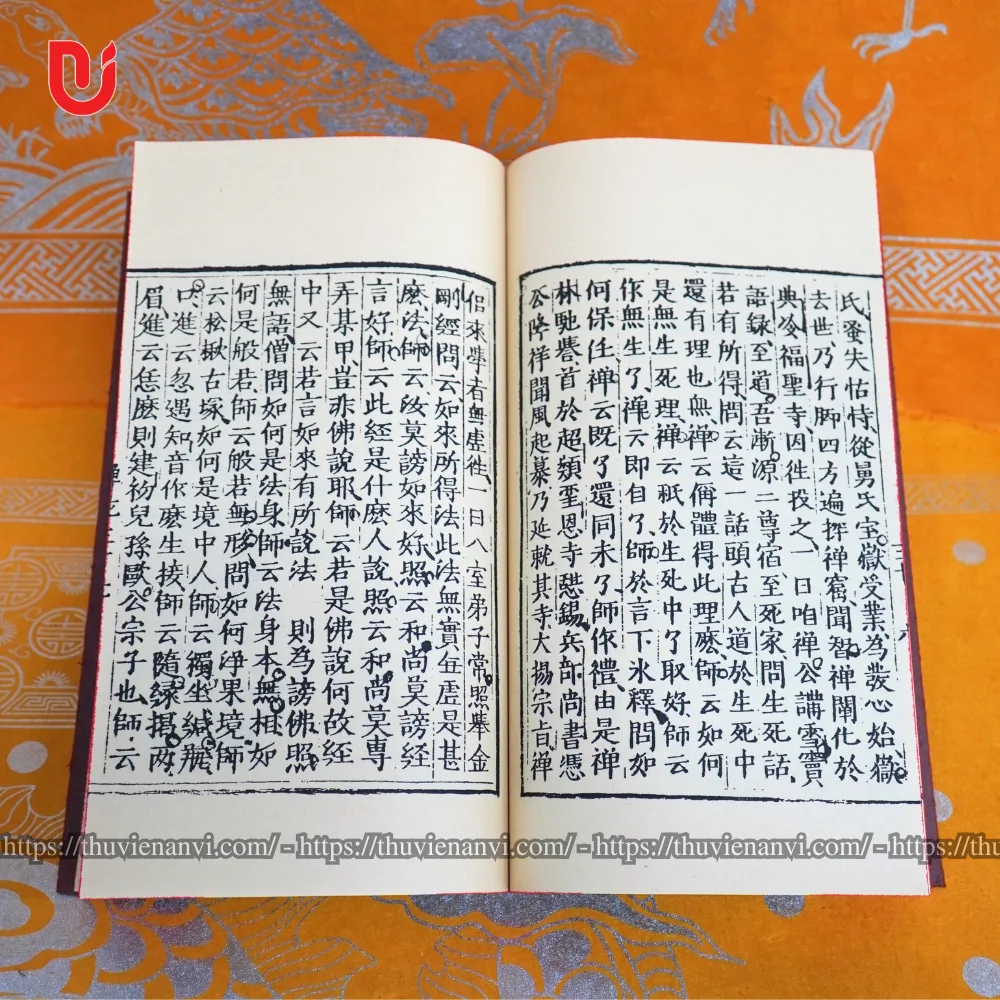 氏蚤失怙恃從舅氏室嶽受業為發心始嶽
去世乃行脚四方遍探禪窟聞智禪闡化於
典冷福聖寺因徃投之一日咱禪公講雪竇
語録至道吾漸源二尊宿至死家問生死話
若有所得問云這一話頭古人道於生死中
還有理也無禪云偁體得此理麽師云如何
是無生死理禪云祇於生死中了取好師云
作無生了禪云即自了師於言下氷釋問如
何保任禪云既了還同未了師作禮由是禪
林馳譽首於超𩔖聖恩寺懸錫兵部尚書憑
公降祥聞風起慕乃延就其寺大揚宗旨禪
侣來學者無虚徃一日入室弟子常照舉金
剛經問云如來所得法此法無實無虚是甚
麽法師云汝莫謗如來好照云和尚莫謗經
言好師云此經是什麽人說照云和尚莫專
弄某甲豈非佛說耶師云若是佛說何故經
中又云若言如來有所說法 則為謗佛照
無語僧問如何是法身師云法身本無相如
何是般若師云般若無形問如何淨果境師
云松楸古塚如何是境中人師云獨坐緘瓶
口進云忽遇知音作麽生接師云隨縁揭两
眉進云恁麽則建初兒孫歐公宗子也師云
https://thuvienanvi.com/ - https://thuvienanvi.com/ - https://thuvienanvi.com/ - https://thuvienanvi.com/